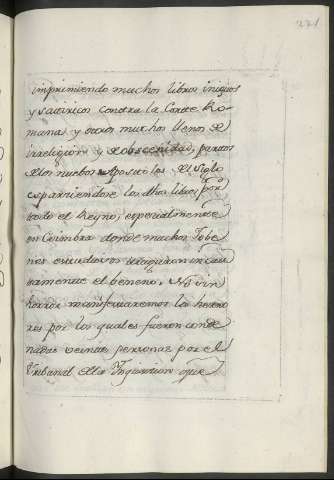 221
imprimiendo muchos libros iniquos
y satiricos contra la Corte Ro-
mana y otros muchos llenos de
irreligion y de obscenidad, partos
de los nuebos Apostoles del Siglo
esparciendose los dhos libros, por
todo el Reyno, especialmente
en Coimbra donde muchos Jobe
nes estudiosos tragaron incau
tamente el beneno. No sin
horror manifestaremos los herro
res por los quales fueron conde
nadas veinte personas por el
Tribunal de la Inquisicion que